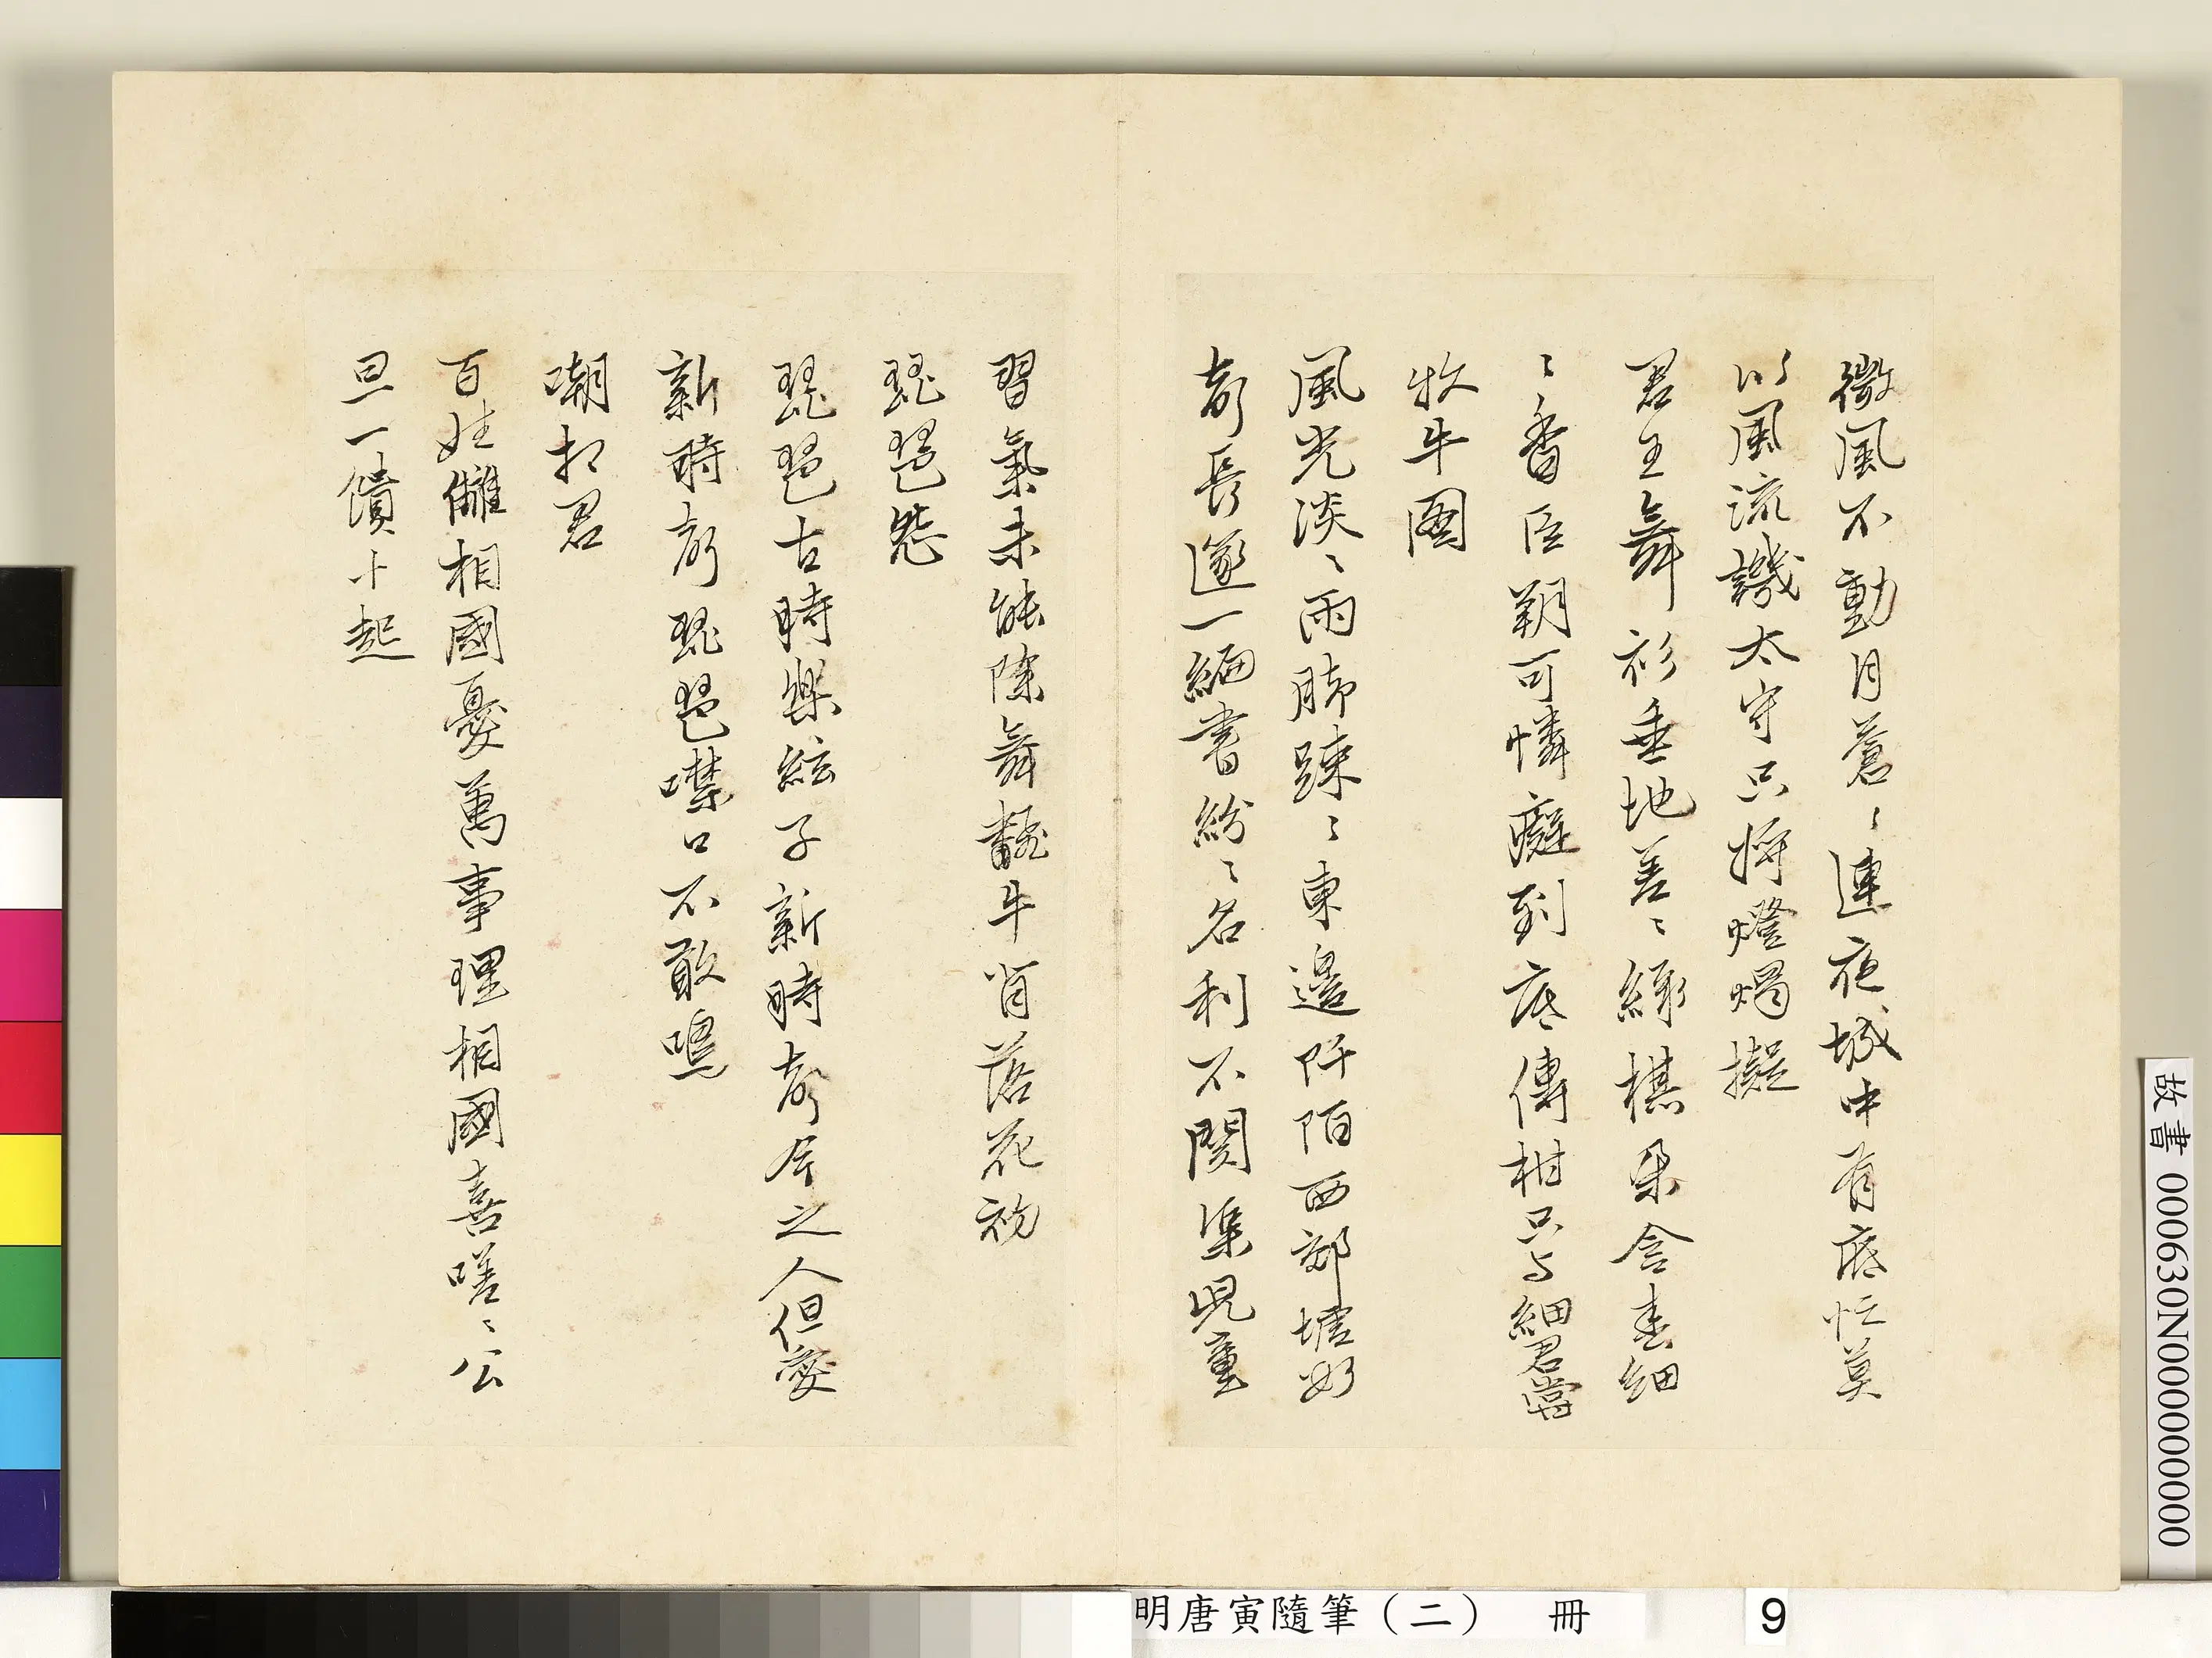 微風不動月蒼〻連夜城中有底忙莫
以風流譏太守只將燈燭擬
君王舞衫垂地差〻綠棋朵含春細
〻香臣朔可憐癡到底傳柑只与細君嘗
牧牛圖
風光淡〻雨肺踈〻東邊阡陌西鄰塘好
奇長邃一編書紛〻名利不関渠児童
習氣未能除舞齾牛背落花初
琵琶怨
琵琶古時樂絃子新時聲今之人但愛
新時聲琵琶噤口不敢鳴
嘲相君
百姓讎相國憂萬事理相國喜嗟〻公
旦一饋十起
明唐寅隨筆（二） 冊 9
故書 000630N000000000